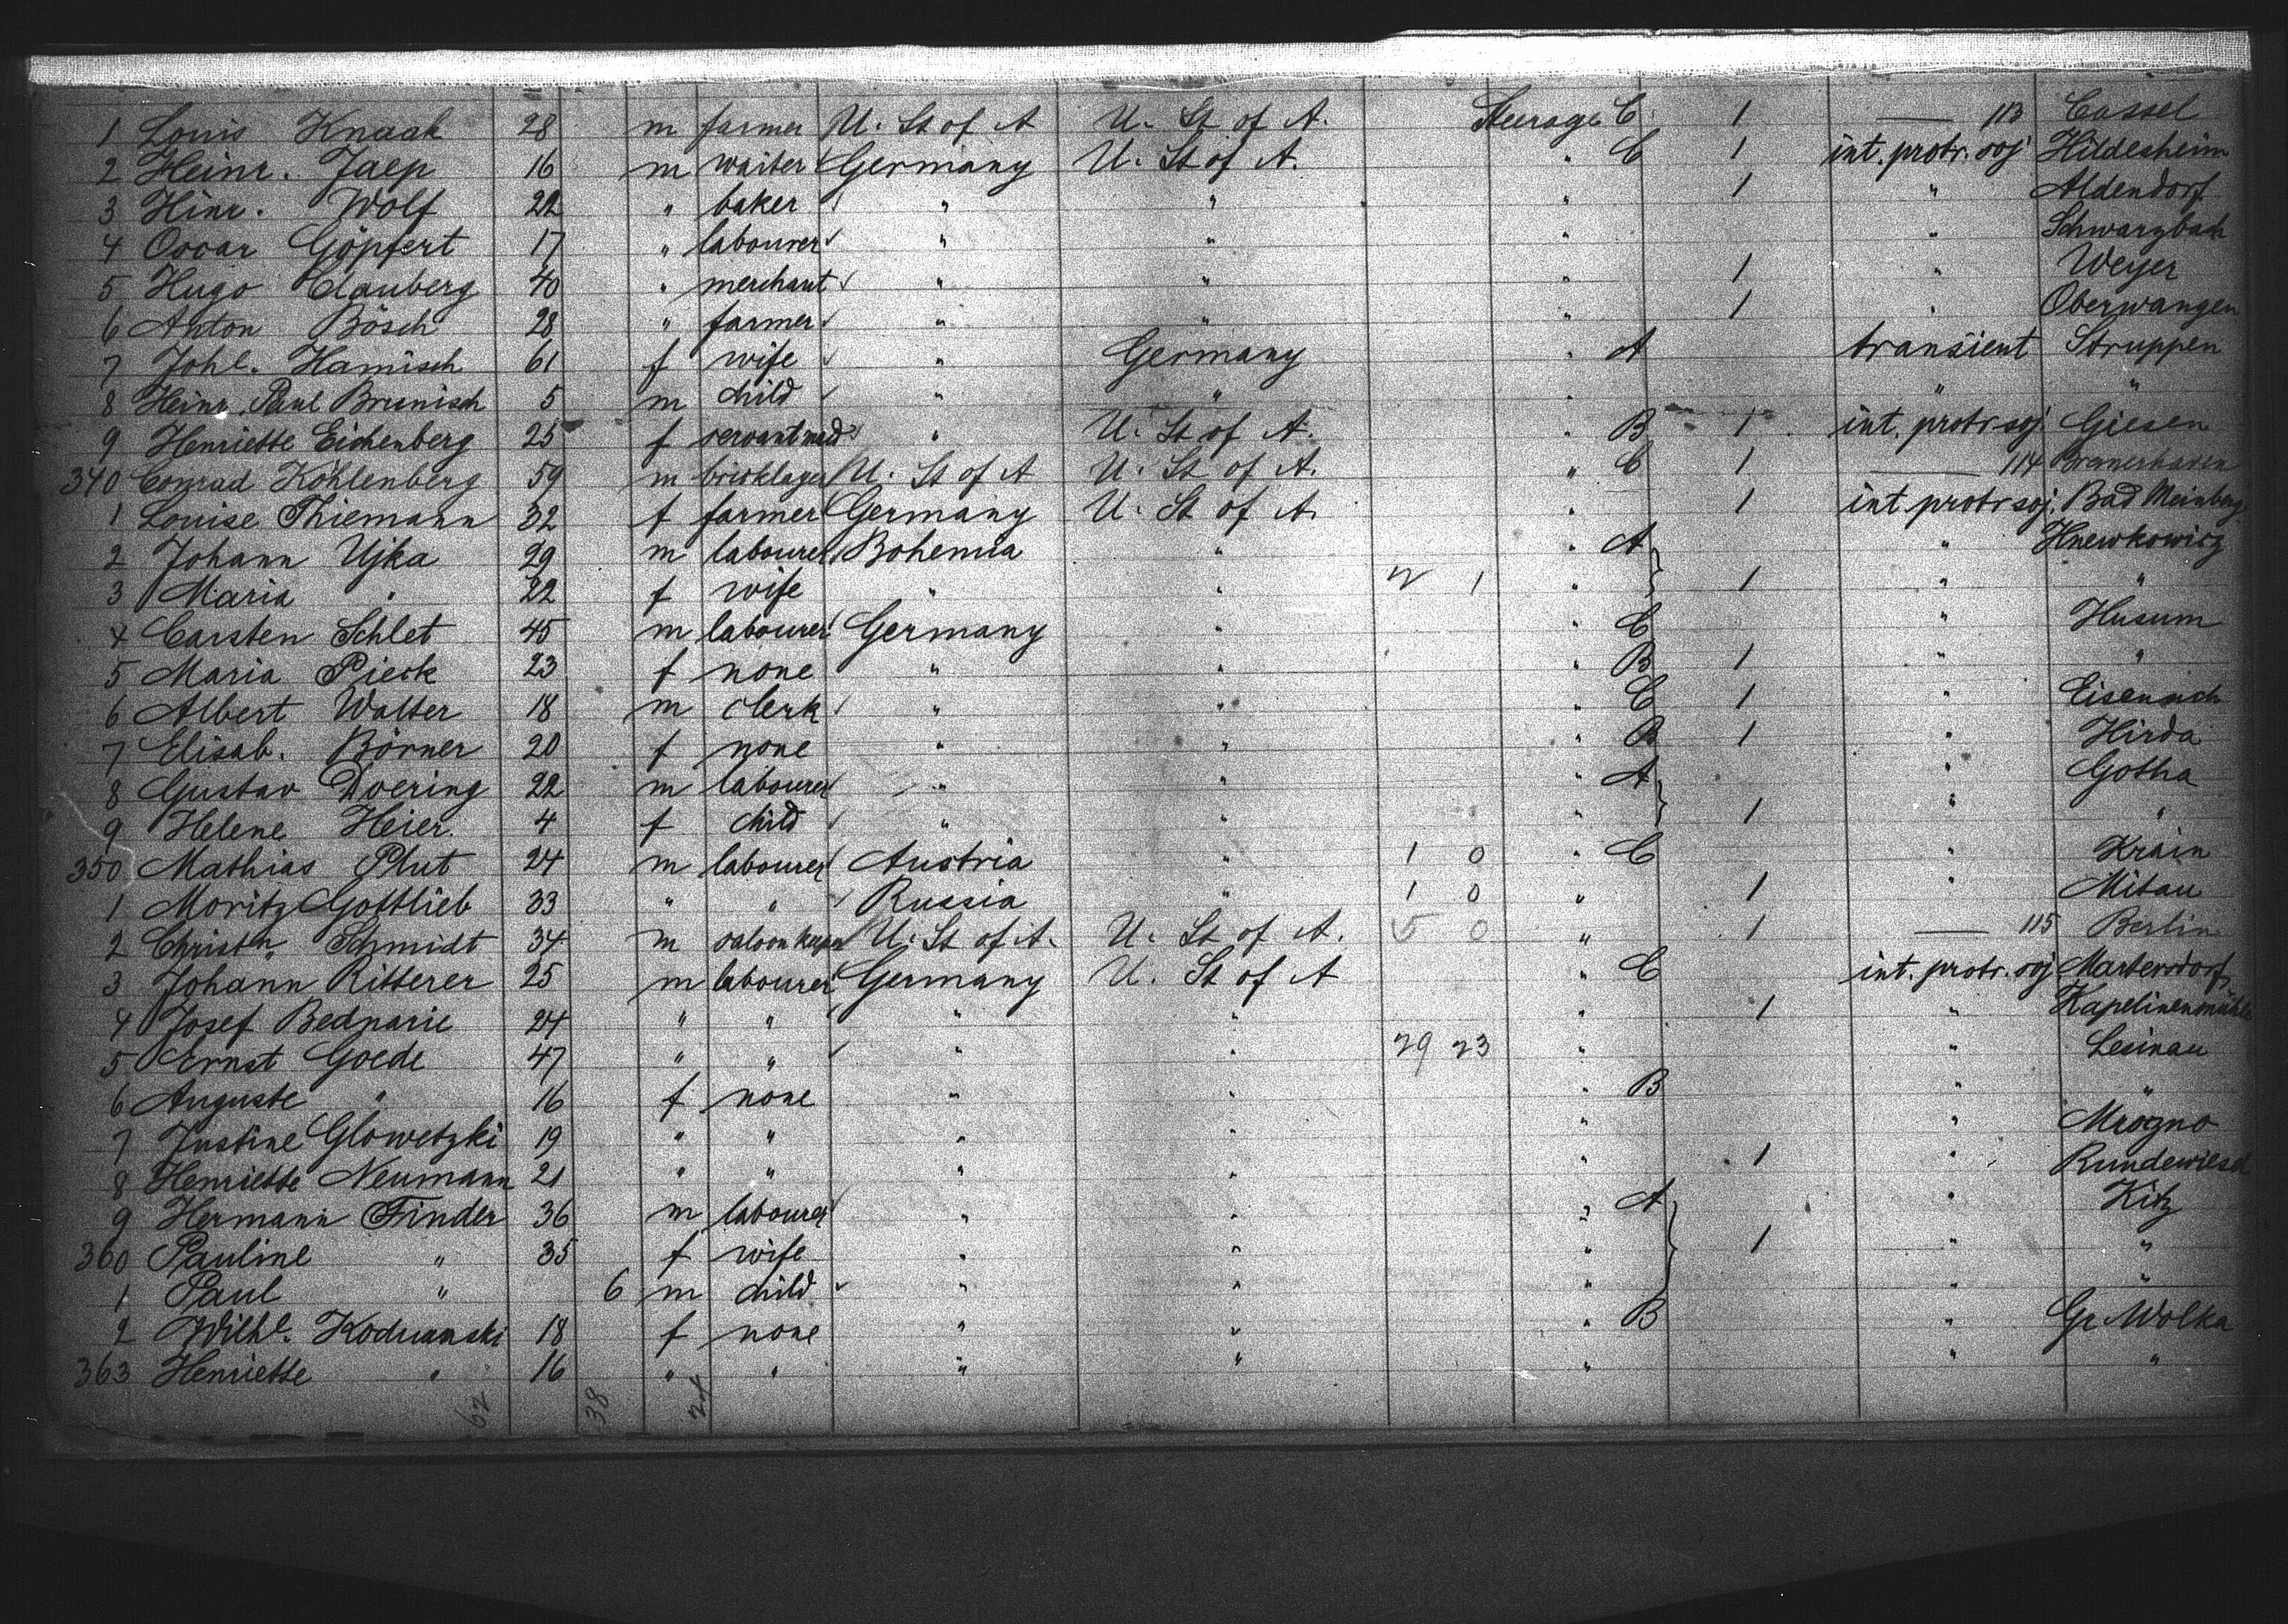 1 Louis Knaak 28 m farmer U. St of A U. St of A. Steerage C 1 — 113 Cassel
2 Heinr. Jaep 16 m waiter Germany U. St of A. " C 1 int. protr. soj Hildesheim
3 Hinr. Wolf 22 " baker " " " 1 " Aldendorf
4 Oscar Göpfert 17 " labourer " " " " Schwarzbach
5 Hugo Clauberg 40 " merchant " " " 1 " Weyer
6 Anton Bösch 28 " farmer " " " 1 " Oberwangen
7 Johl. Hamisch 61 f wife " Germany " A transient Struppen
8 Heinr. Paul Brunisch 5 m child " " " " "
9 Henriette Eichenberg 25 f servantmaid " U. St of A. " B 1 int. protr soj Giesen
340 Conrad Köhlenberg 59 m bricklager U. St of A U. St of A. " C 1 — 114 Bremerhaven
1 Louise Thiemann 32 f farmer Germany U. St of A. " 1 int protr soj. Bad Meinberg
2 Johann Ujka 29 m labourer Bohemia " " A " Hnewkowicz
3 Maria " 22 f wife " " 2 1 " 1 " "
4 Carsten Schlet 45 m labourer Germany " " C " Husum
5 Maria Pieck 23 f none " " " B 1 " "
6 Albert Walter 18 m clerk " " " C 1 " Eisenach
7 Elisab. Börner 20 f none " " " B 1 " Hirda
8 Gustav Doering 22 m labourer " " " A " Gotha
9 Helene Heier 4 f child " " " 1 " "
350 Mathias Plut 24 m labourer Austria " 1 0 " C " Krain
1 Moritz Gottlieb 33 " " Russia " 1 0 " 1 " Mitau
2 Christn. Schmidt 34 m saloon keeper U. St of A. U. St of A. 5 0 " 1 — 115 Berlin
3 Johann Ritterer 25 m labourer Germany U. St of A " C int. protr. soj Martersdorf
4 Josef Bednarie 24 " " " " " 1 " Kapelinenmühle
5 Ernst Goede 47 " " " " 29 23 " " Lesinau
6 Auguste " 16 f none " " " B " "
7 Justine Glowetzki 19 " " " " " " Mrogno
8 Henriette Neumann 21 " " " " " 1 " Rundewiese
9 Hermann Finder 36 m labourer " " " A " Kitz
360 Pauline " 35 f wife " " " 1 " "
1 Paul " 6 m child " " " " "
2 Wilhl. Kodumski 18 f none " " " B " Gr. Wolka
363 Henriette " 16 " " " " " " "
62 38 24